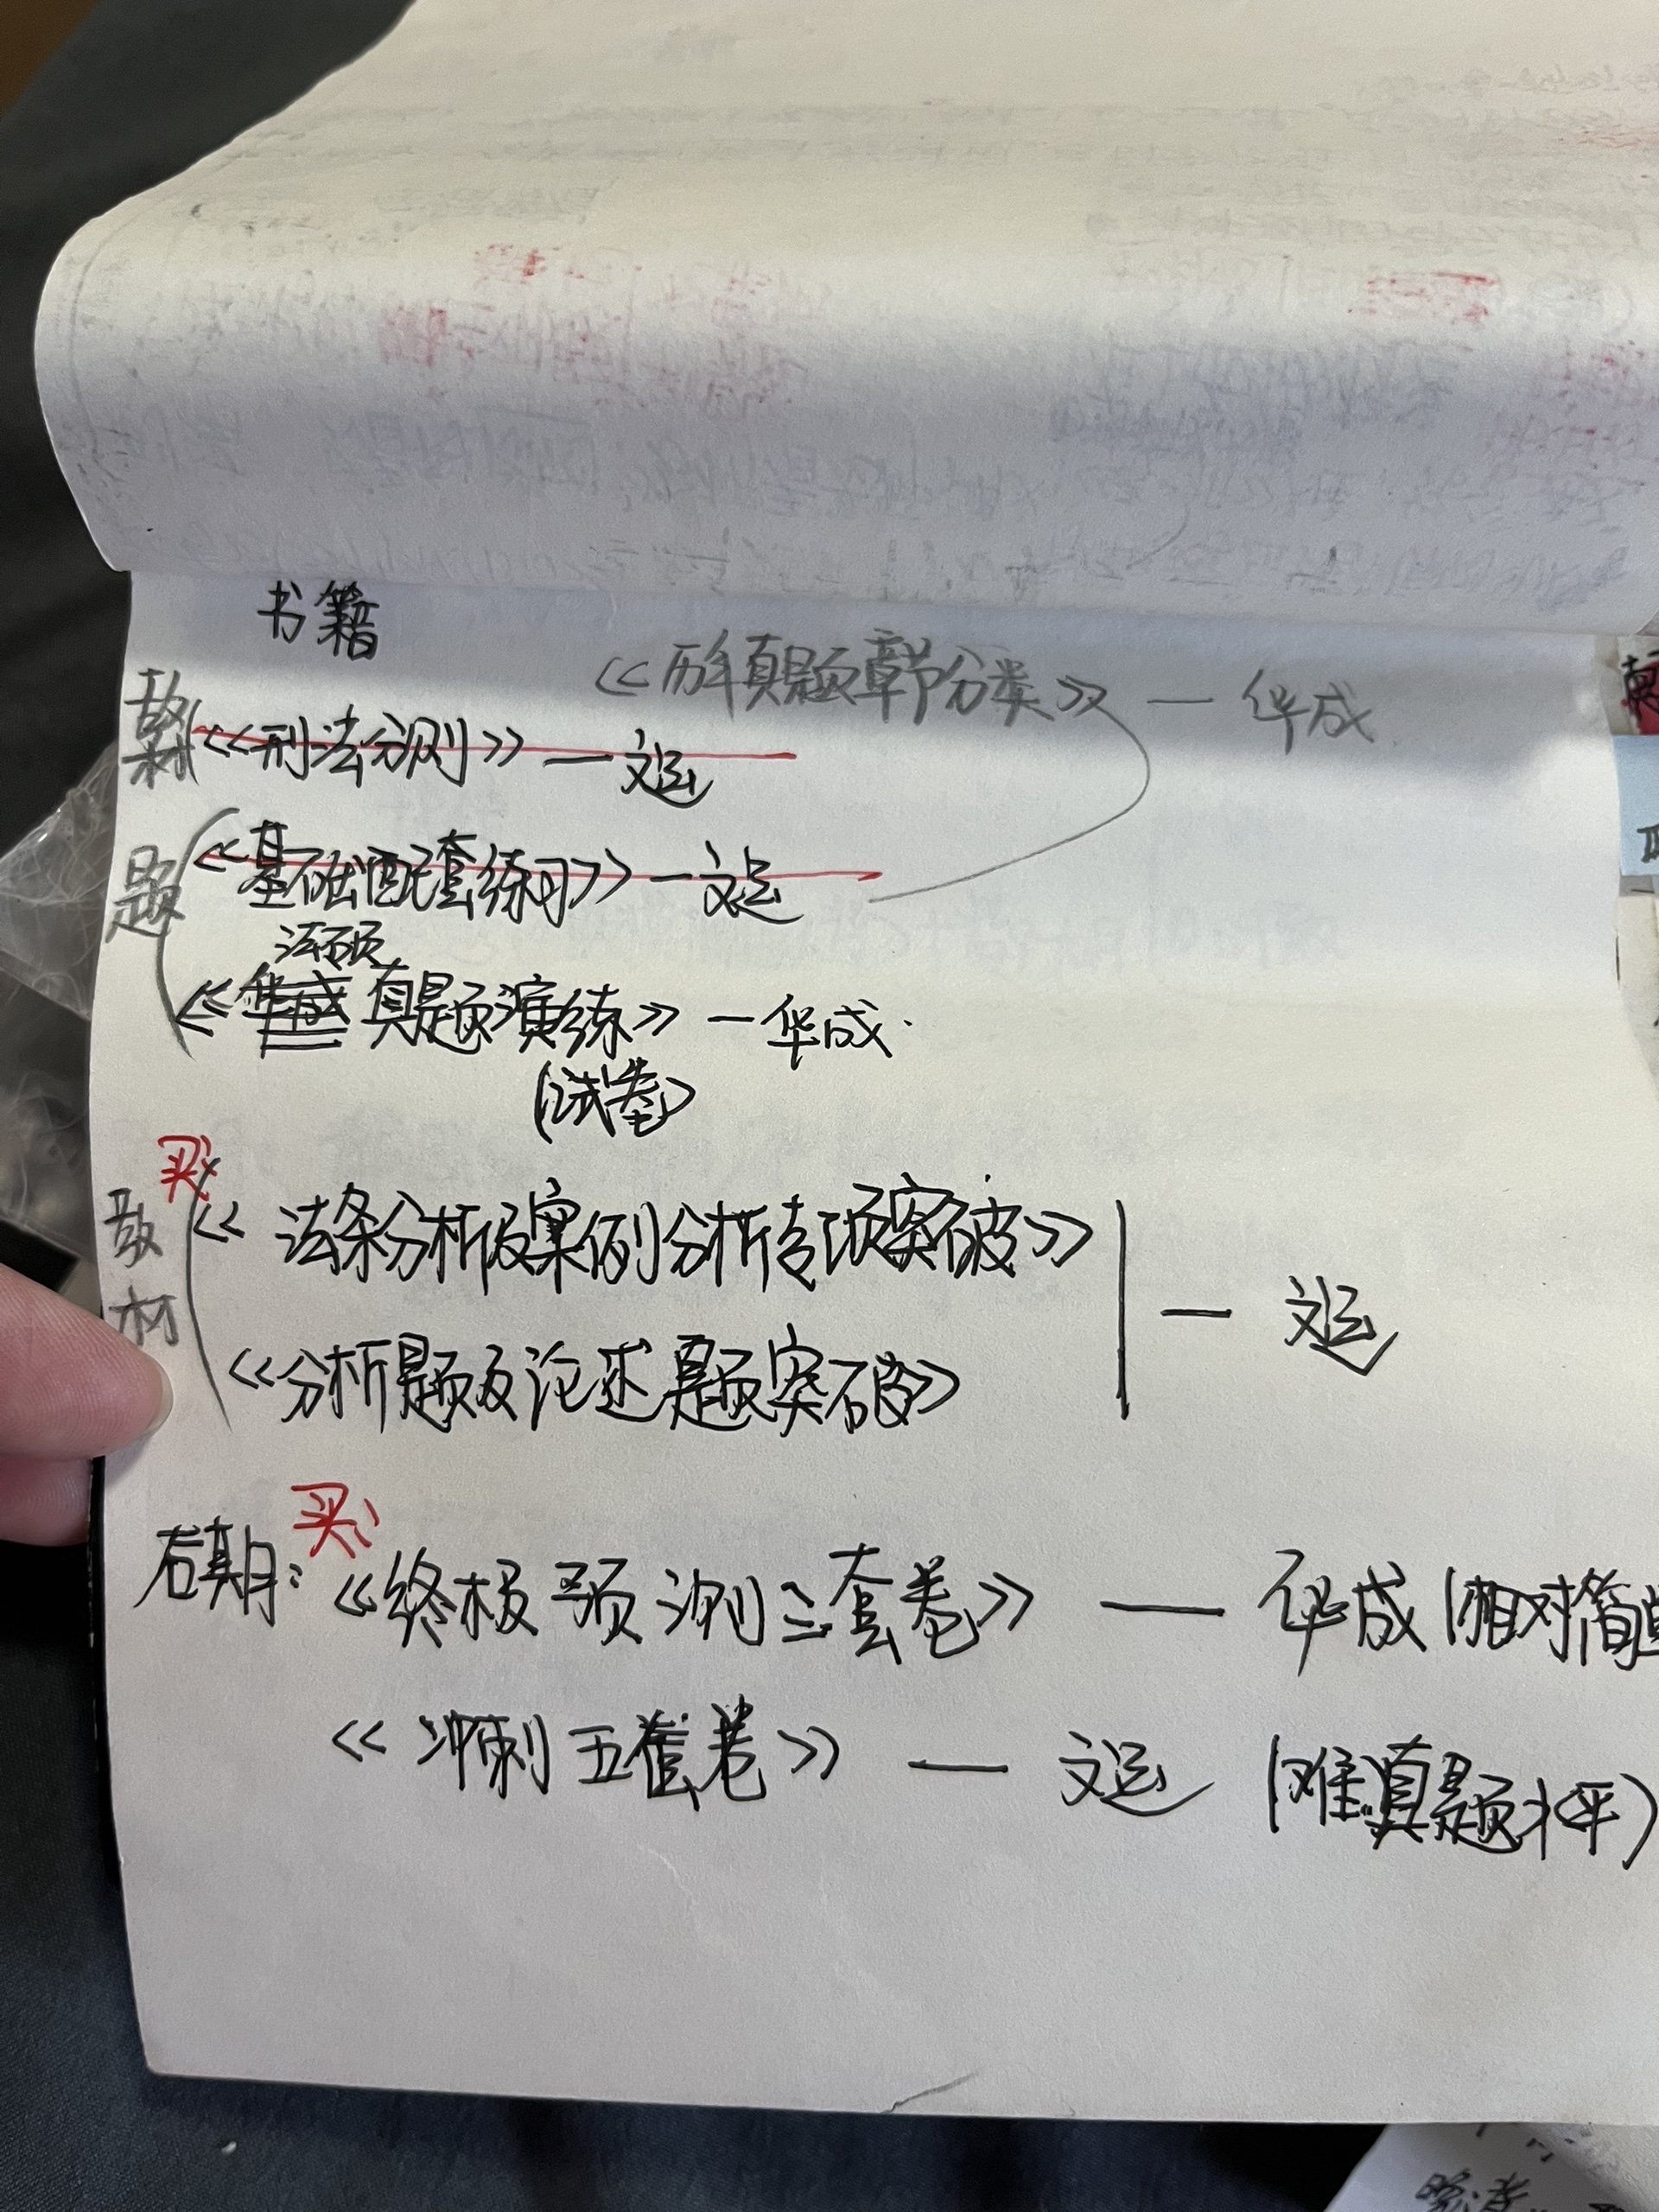 书籍
《历年真题章节分类》 — 华成
教材
《刑法分则》 — 文运
题
《基础配套练习》 — 文运
法硕
《华成 真题演练》 — 华成
(试卷)
买
教材
《法条分析及案例分析专项突破》
— 文运
《分析题及论述题突破》
买
后期:
《终极预测三套卷》 — 华成 (相对简单
《冲刺五套卷》 — 文运 (难 真题水平)